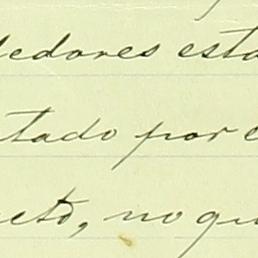 dedores esta
tado por e
ueto, no qu